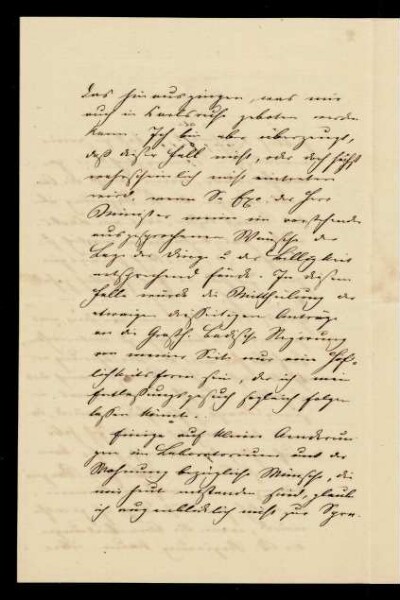 das hinausgingen, was mir
auch in Karlsruhe geboten werden
kann. Ich bin aber überzeugt,
daß dieser Fall nicht, oder doch höchst
wahrscheinlich nicht eintreten
wird, wenn Se Exc. der Herr
Minister meine im vorstehenden
ausgesprochenen Wünsche der
Lage der Dinge u. der Billigkeit
entsprechend fände. In diesem
Falle würde die Mittheilung der
etwaigen dortseitigen Anträge
an die Großh. Badisch. Regierung
von meiner Seite nur eine Höf-
lichkeitsform sein, da ich mein
Entlassungsgesuch sogleich folgen
lassen könnte.
Einige auf kleine Aenderun-
gen im Laboratorium und der
Wohnung bezügliche Wünsche, die
mir heut entstanden sind, glaube
ich augenblicklich nicht zur Spra-